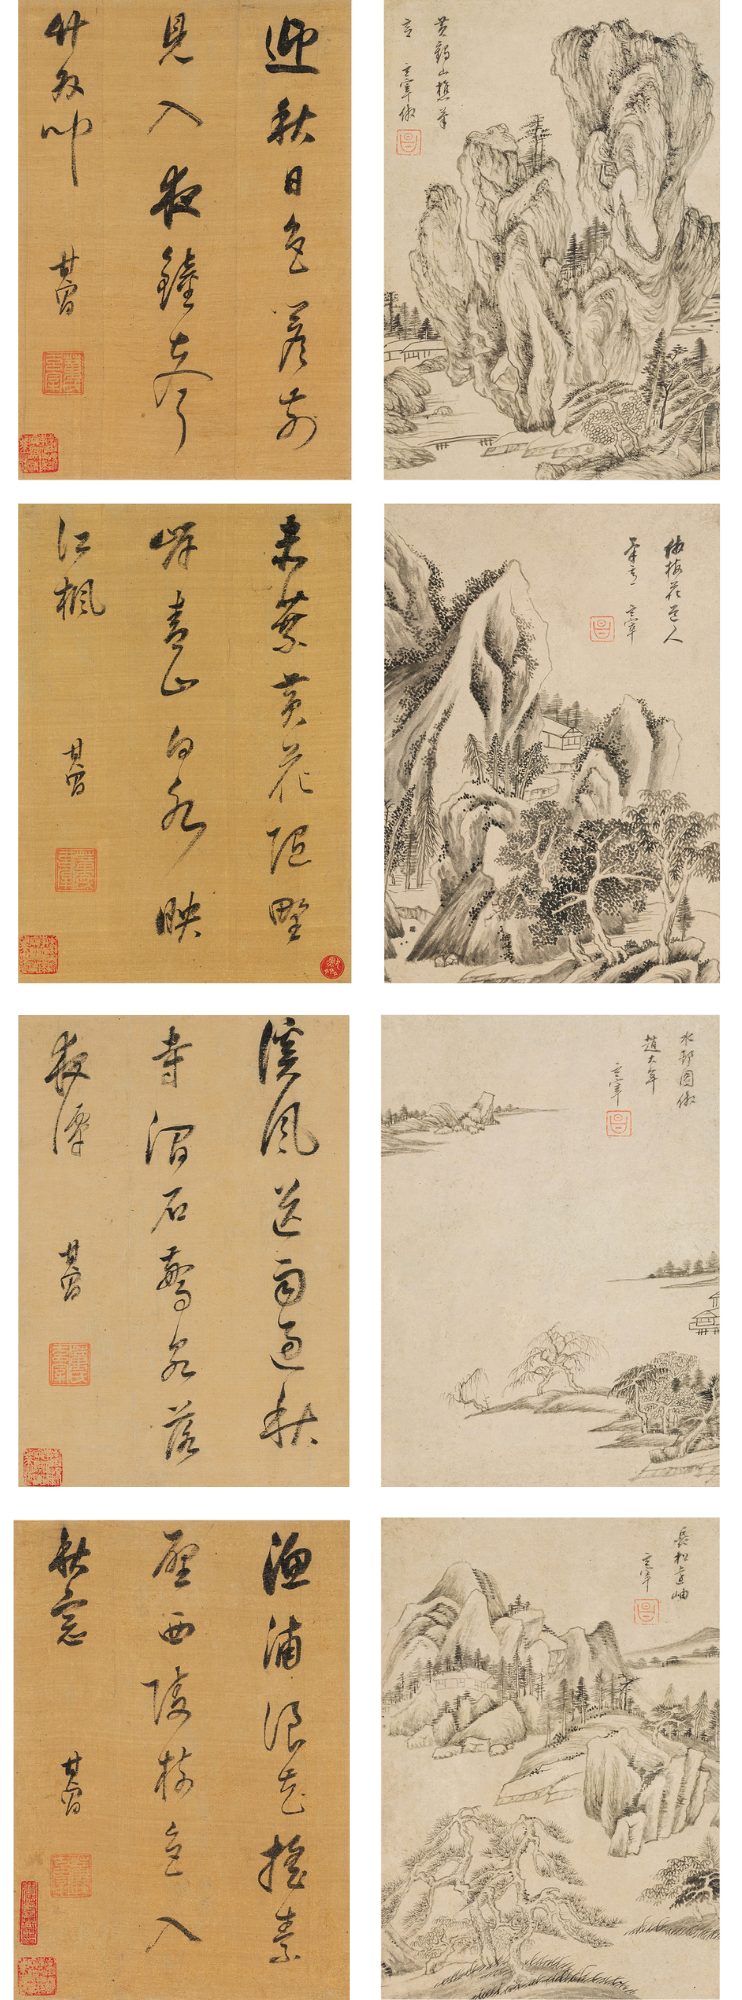 黃鶴山樵筆
意 玄宰倣
迎秋日色簷前
見入夜鐘聲
竹外聞
其昌
倣梅花道人
筆意 玄宰
黃花隱野
岸青山白水映
江楓
其昌
水邨圖倣
趙大年
玄宰
溪風送雨過秋
寺澗石驚泉落
夜潭
其昌
長松遠岫
玄宰
漁浦浪花搖素
壁西陵樹色入
秋窓
其昌